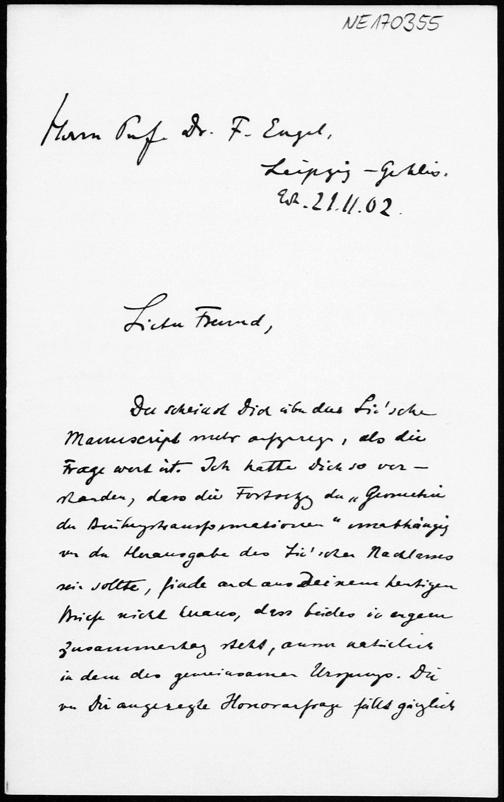 NE170355
Herrn Prof. Dr. F. Engel,
Leipzig-Gohlis.
21.11.02.
Lieber Freund,
Du scheinst Dich über das Lie'sche
Manuscript mehr aufzuregen, als die
Frage wert ist. Ich hatte Dich so ver-
standen, dass die Fortsetzg der „Geometrie
der Berührungstransformationen" unabhängig
von der Herausgabe des Lie'schen Nachlasses
sein sollte, finde auch aus Deinem heutigen
Briefe nicht heraus, dass beides in engem
Zusammenhag steht, ausser natürlich
in dem des gemeinsamen Ursprungs. Die
von Dir angeregte Honorarfrage fällt gänzlich